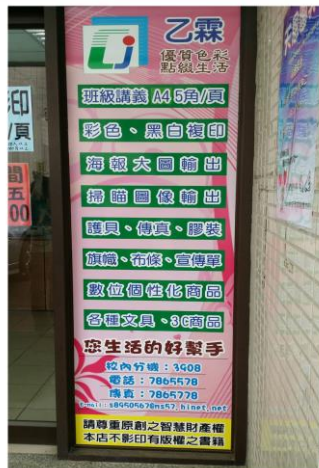 乙霖
優質色彩
點綴生活
班級講義 A4 5角/頁
彩色、黑白複印
海報大圖輸出
掃瞄圖像輸出
護貝、傳真、膠裝
旗幟、布條、宣傳單
數位個性化商品
各種文具、3C商品
您生活的好幫手
校內分機：3908
電話：7865578
傳真：7865778
請尊重原創之智慧財產權
本店不影印有版權之書籍
影印
/頁